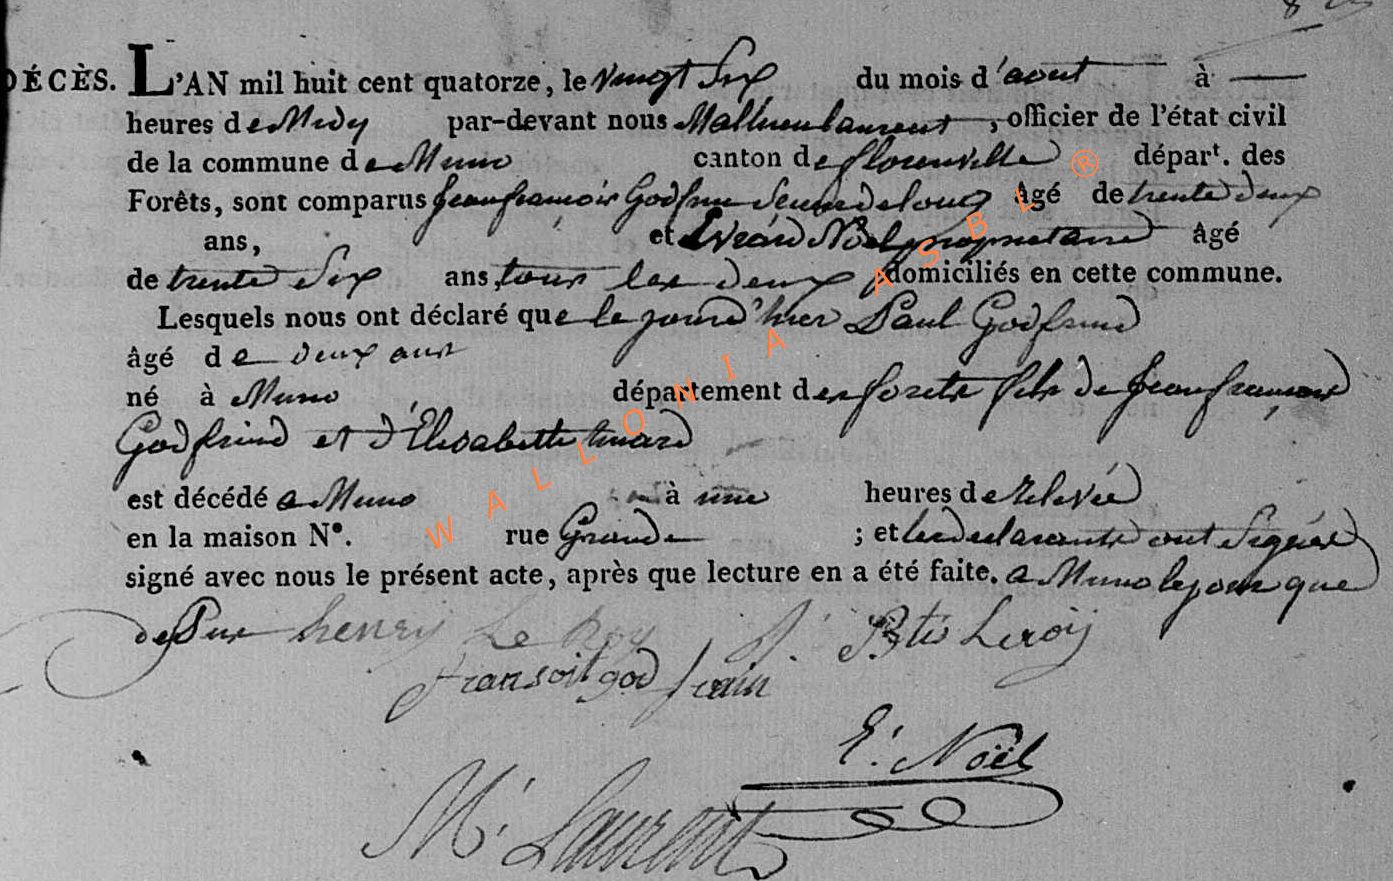 DÉCÈS. L'AN mil huit cent quatorze, le vingt Six du mois d'aout à
heures de Midy par-devant nous Mathieu Laurent, officier de l'état civil
de la commune de Muno canton de florenville départ. des
Forêts, sont comparus Jean françois Godfrin âgé de trente deux
ans, et Evrard Noel propriétaire âgé
de trente Six ans, tous les deux domiciliés en cette commune.
Lesquels nous ont déclaré que le jour d'hier Paul Godfrind
âgé de deux ans
né à Muno département des forets fils de Jean françois
Godfrind et d'Elisabette
est décédé a Muno à une heures de relevée
en la maison N°. rue Grande ; et les declarants ont Signés
signé avec nous le présent acte, après que lecture en a été faite. a Muno le jour que
deSSus henry Le Roy J. Bte Leroy
fransoit god frain
E. Noël
M. Laurent
WALLONIA ASBL ®